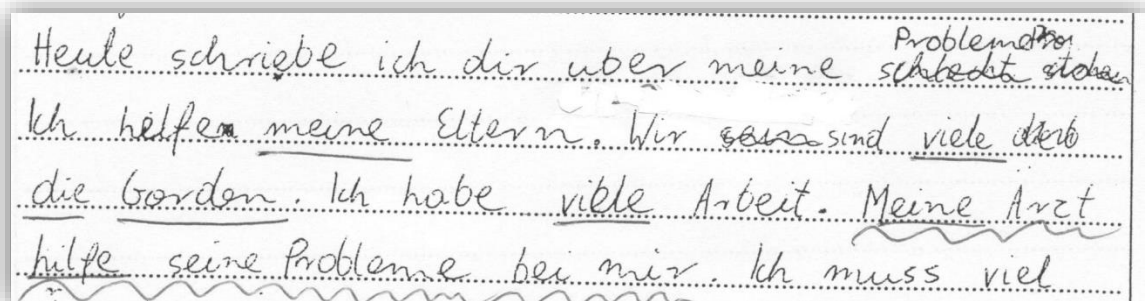 Heute schriebe ich dir uber meine Probleme
Ich helfe meine Eltern. Wir sind viele
die Gorden. Ich habe viele Arbeit. Meine Arzt
hilfe seine Probleme bei mir. Ich muss viel